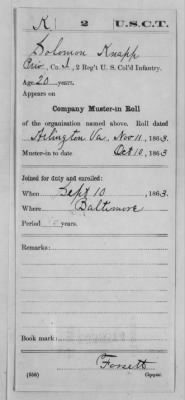 K | 2 | U.S.C.T.
Solomon Knapp
Priv, Co. I, 2 Reg't U. S. Col'd Infantry.
Age 20 years.
Appears on
Company Muster-in Roll
of the organization named above. Roll dated
Arlington Va, Nov 11, 1863.
Muster-in to date Oct 10, 1863
Joined for duty and enrolled:
When Sept 10, 1863.
Where Baltimore
Period years.
Remarks:
Book mark:
Forsett
(356) Copyist.